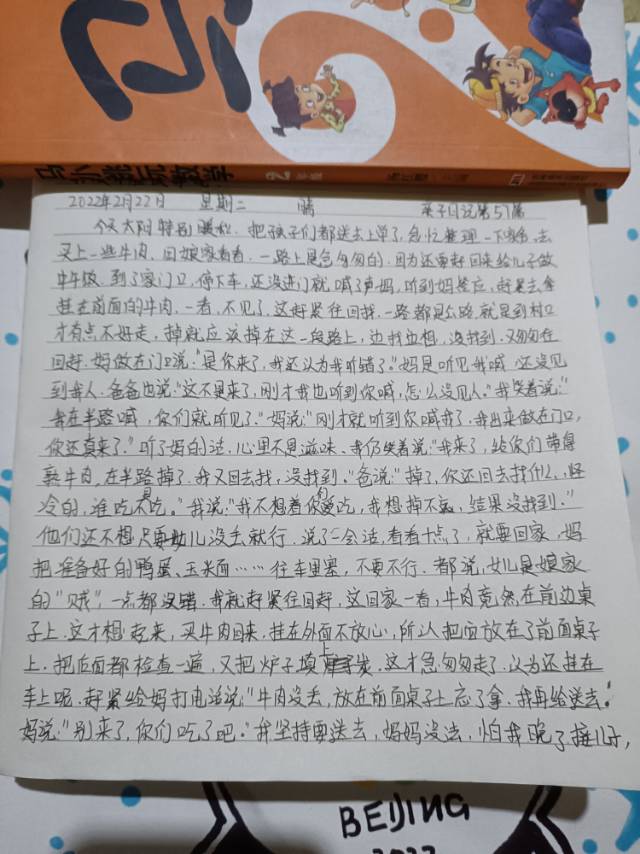 马小跳玩数学
2年级
2022年2月22日 星期二 晴 亲子日记第57篇
今天太阳特别暖和，把孩子们都送去上学了，急忙整理一下家务，去
买上一些牛肉，回娘家看看，一路上是急匆匆的，因为还要赶回来给儿子做
中午饭，到了家门口，停下车，还没进门就喊了声妈，听到妈答应，赶紧去拿
挂在前面的牛肉，一看，不见了，这赶紧往回找，一路都是公路，就是到村口
才有点不好走，掉就应该掉在这一段路上，边找边想，没找到，又匆匆往
回赶，妈做在门口说："是你来了，我还认为我听错了。"妈是听见我喊，还没见
到我人，爸爸也说："这不是来了，刚才我也听到你喊，怎么没见人。"我笑着说："
我在半路喊，你们就听见了。"妈说："刚才就听到你喊我了，我出来做在门口，
你还真来了。"听了妈的话，心里不是滋味，我仍笑着说："我来了，给你们带得
熟牛肉，在半路掉了，我又回去找，没找到。"爸说："掉了，你还回去找什么，怪
冷的，谁吃不是吃。"我说："我不想着你的爱吃，我想掉不远，结果没找到。"
他们还不想只要幼儿没丢就行，说了一会话，看看十点了，就要回家，妈
把准备好的鸭蛋、玉米面……往车里塞，不要不行，都说，女儿是娘家
的"贼"，一点都没错，我就赶紧往回赶，这回家一看，牛肉竟然在前边桌
子上，这才想起来，买牛肉回来，挂在外面不放心，所认把它放在了前面桌子
上，把后面都检查一遍，又把炉子填上炭，这才急匆匆走了，认为还挂在
车上呢，赶紧给妈打电话说："牛肉没丢，放在前面桌子上忘了拿，我再给送去。"
妈说："别来了，你们吃了吧。"我坚持要送去，妈妈没法，怕我晚了接儿子，
BEIJING
2022